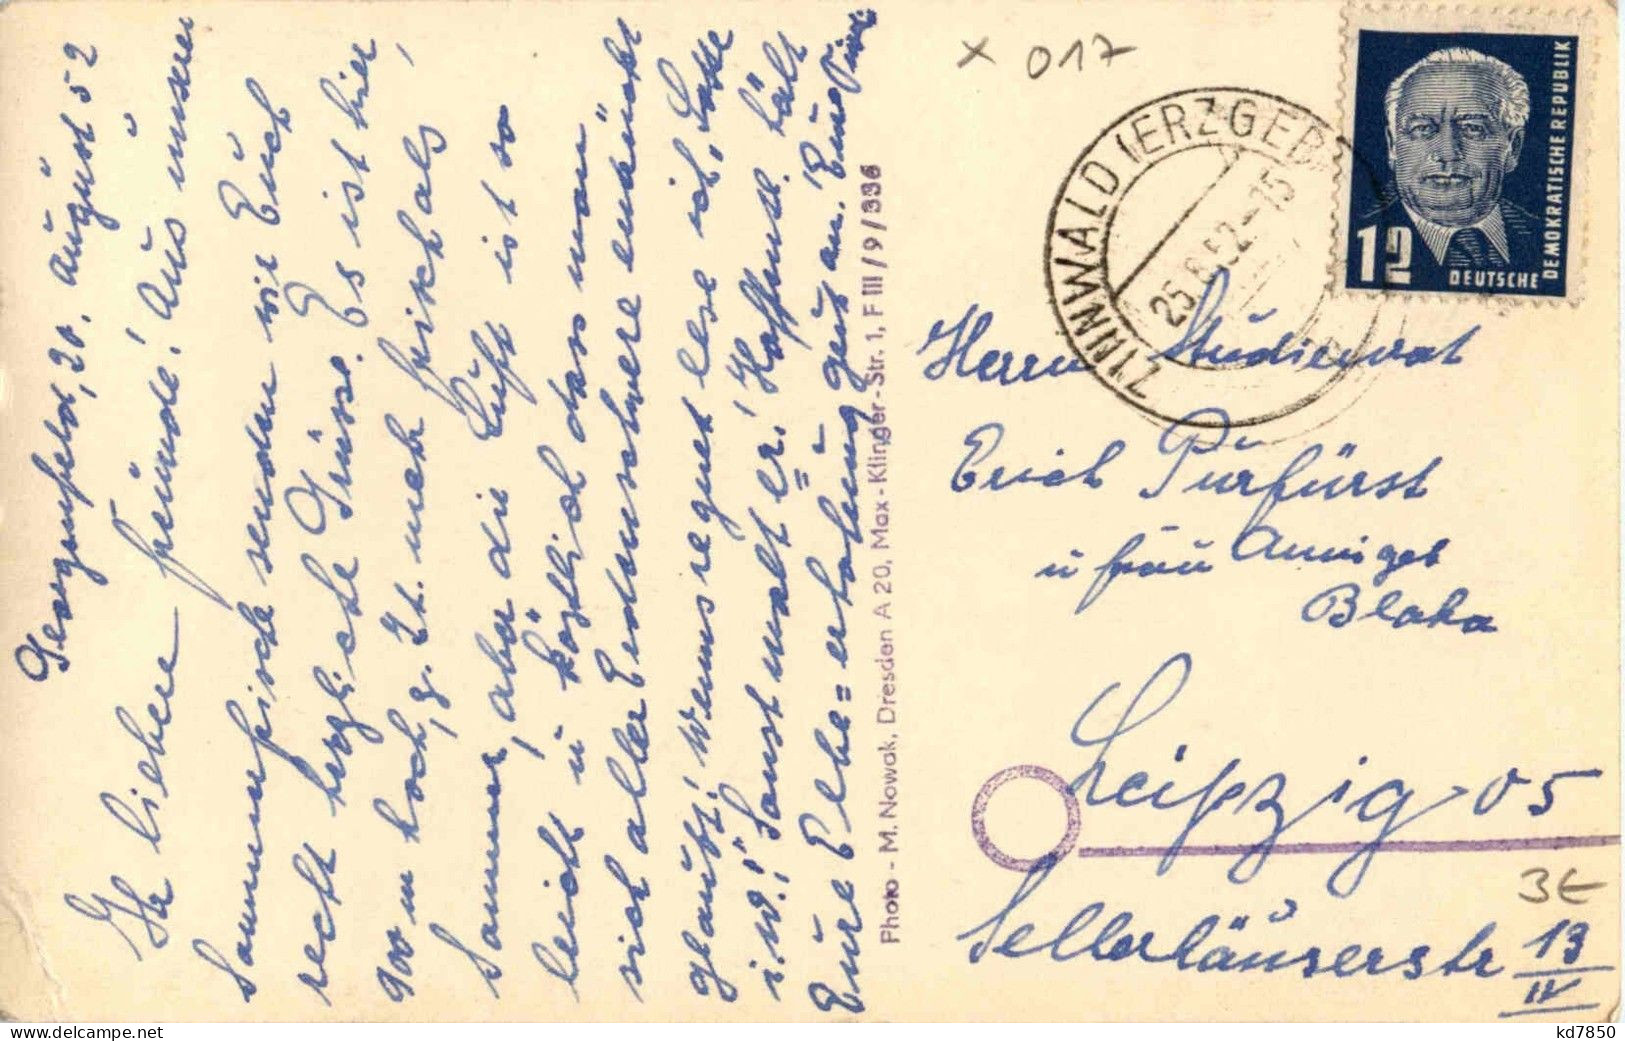 Georgenfeld, 20. August 52
Ihr lieben Freunde! Aus unserer
Sommerfrische senden wir Euch
recht herzliche Grüsse. Es ist hier,
900 m hoch, z. Zt. mehr frisch als
Sommer, aber die Luft ist so
leicht u köstlich dass man
sich aller Erdenschwere entrückt
glaubt! Wenns regnet lese ich,
i. W.! Sonst malt er! Hoffentl. hält
Eure Elbe=erholung gut an. Eure
Photo - M. Nowak, Dresden A 20, Max-Klinger-Str. 1, F III/9/336
x 017
ZINNWALD (ERZGEB)
25.8.52-15
12
DEUTSCHE
DEMOKRATISCHE REPUBLIK
Herrn Studienrat
Erich Purfürst
u frau
Leipzig O5
3€
Sellerhäuserstr 13
IV
kd7850